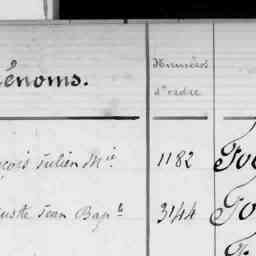 énoms.
Numéros
d'ordre
çois Julien Mie 1182
uste Jean Bapte 3144